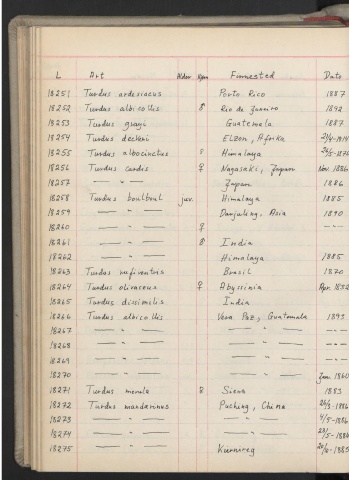 L Art Alder Kjøn Finnested Dato
18251 Turdus ardesiacus Porto Rico 1887
18252 Turdus albicollis ♂ Rio de Janeiro 1892
18253 Turdus grayi Guatemala 1887
18254 Turdus deckeni Elzon, Afrika
18255 Turdus albocinctus Himalaya
18256 Turdus cardis ♀ Nagasaki, Japan Nov. 1886
18257 — " — Japan 1886
18258 Turdus boulboul juv. Himalaya 1885
18259 — " — Darjuling, Asia 1890
18260 — " — ♀ ---
18261 — " — ♂ India
18262 — " — Himalaya 1885
18263 Turdus rufiventris Brasil 1870
18264 Turdus olivaceus ♀ Abyssinia Apr. 1852
18265 Turdus dissimilis India
18266 Turdus albicollis Vera Paz, Guatemala 1895
18267 — " — — " — ---
18268 — " — — " — ---
18269 — " — — " — ---
18270 — " — Jan. 1860
18271 Turdus merula Siena 1883
18272 Turdus mandarinus Puching, China 26/3-1886
18273 — " — — " — 4/5-1886
18274 — " — — " — 23/5-1886
18275